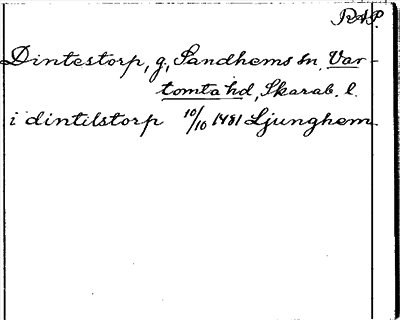 RAP.
Dintestorp, g, Sandhems sn. Var-
tomta hd, Skarab. l.
i dintilstorp 10/10 1481 Ljunghem